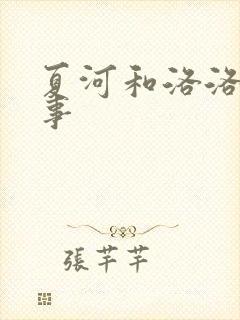 夏河和洛洛
事
張芊芊